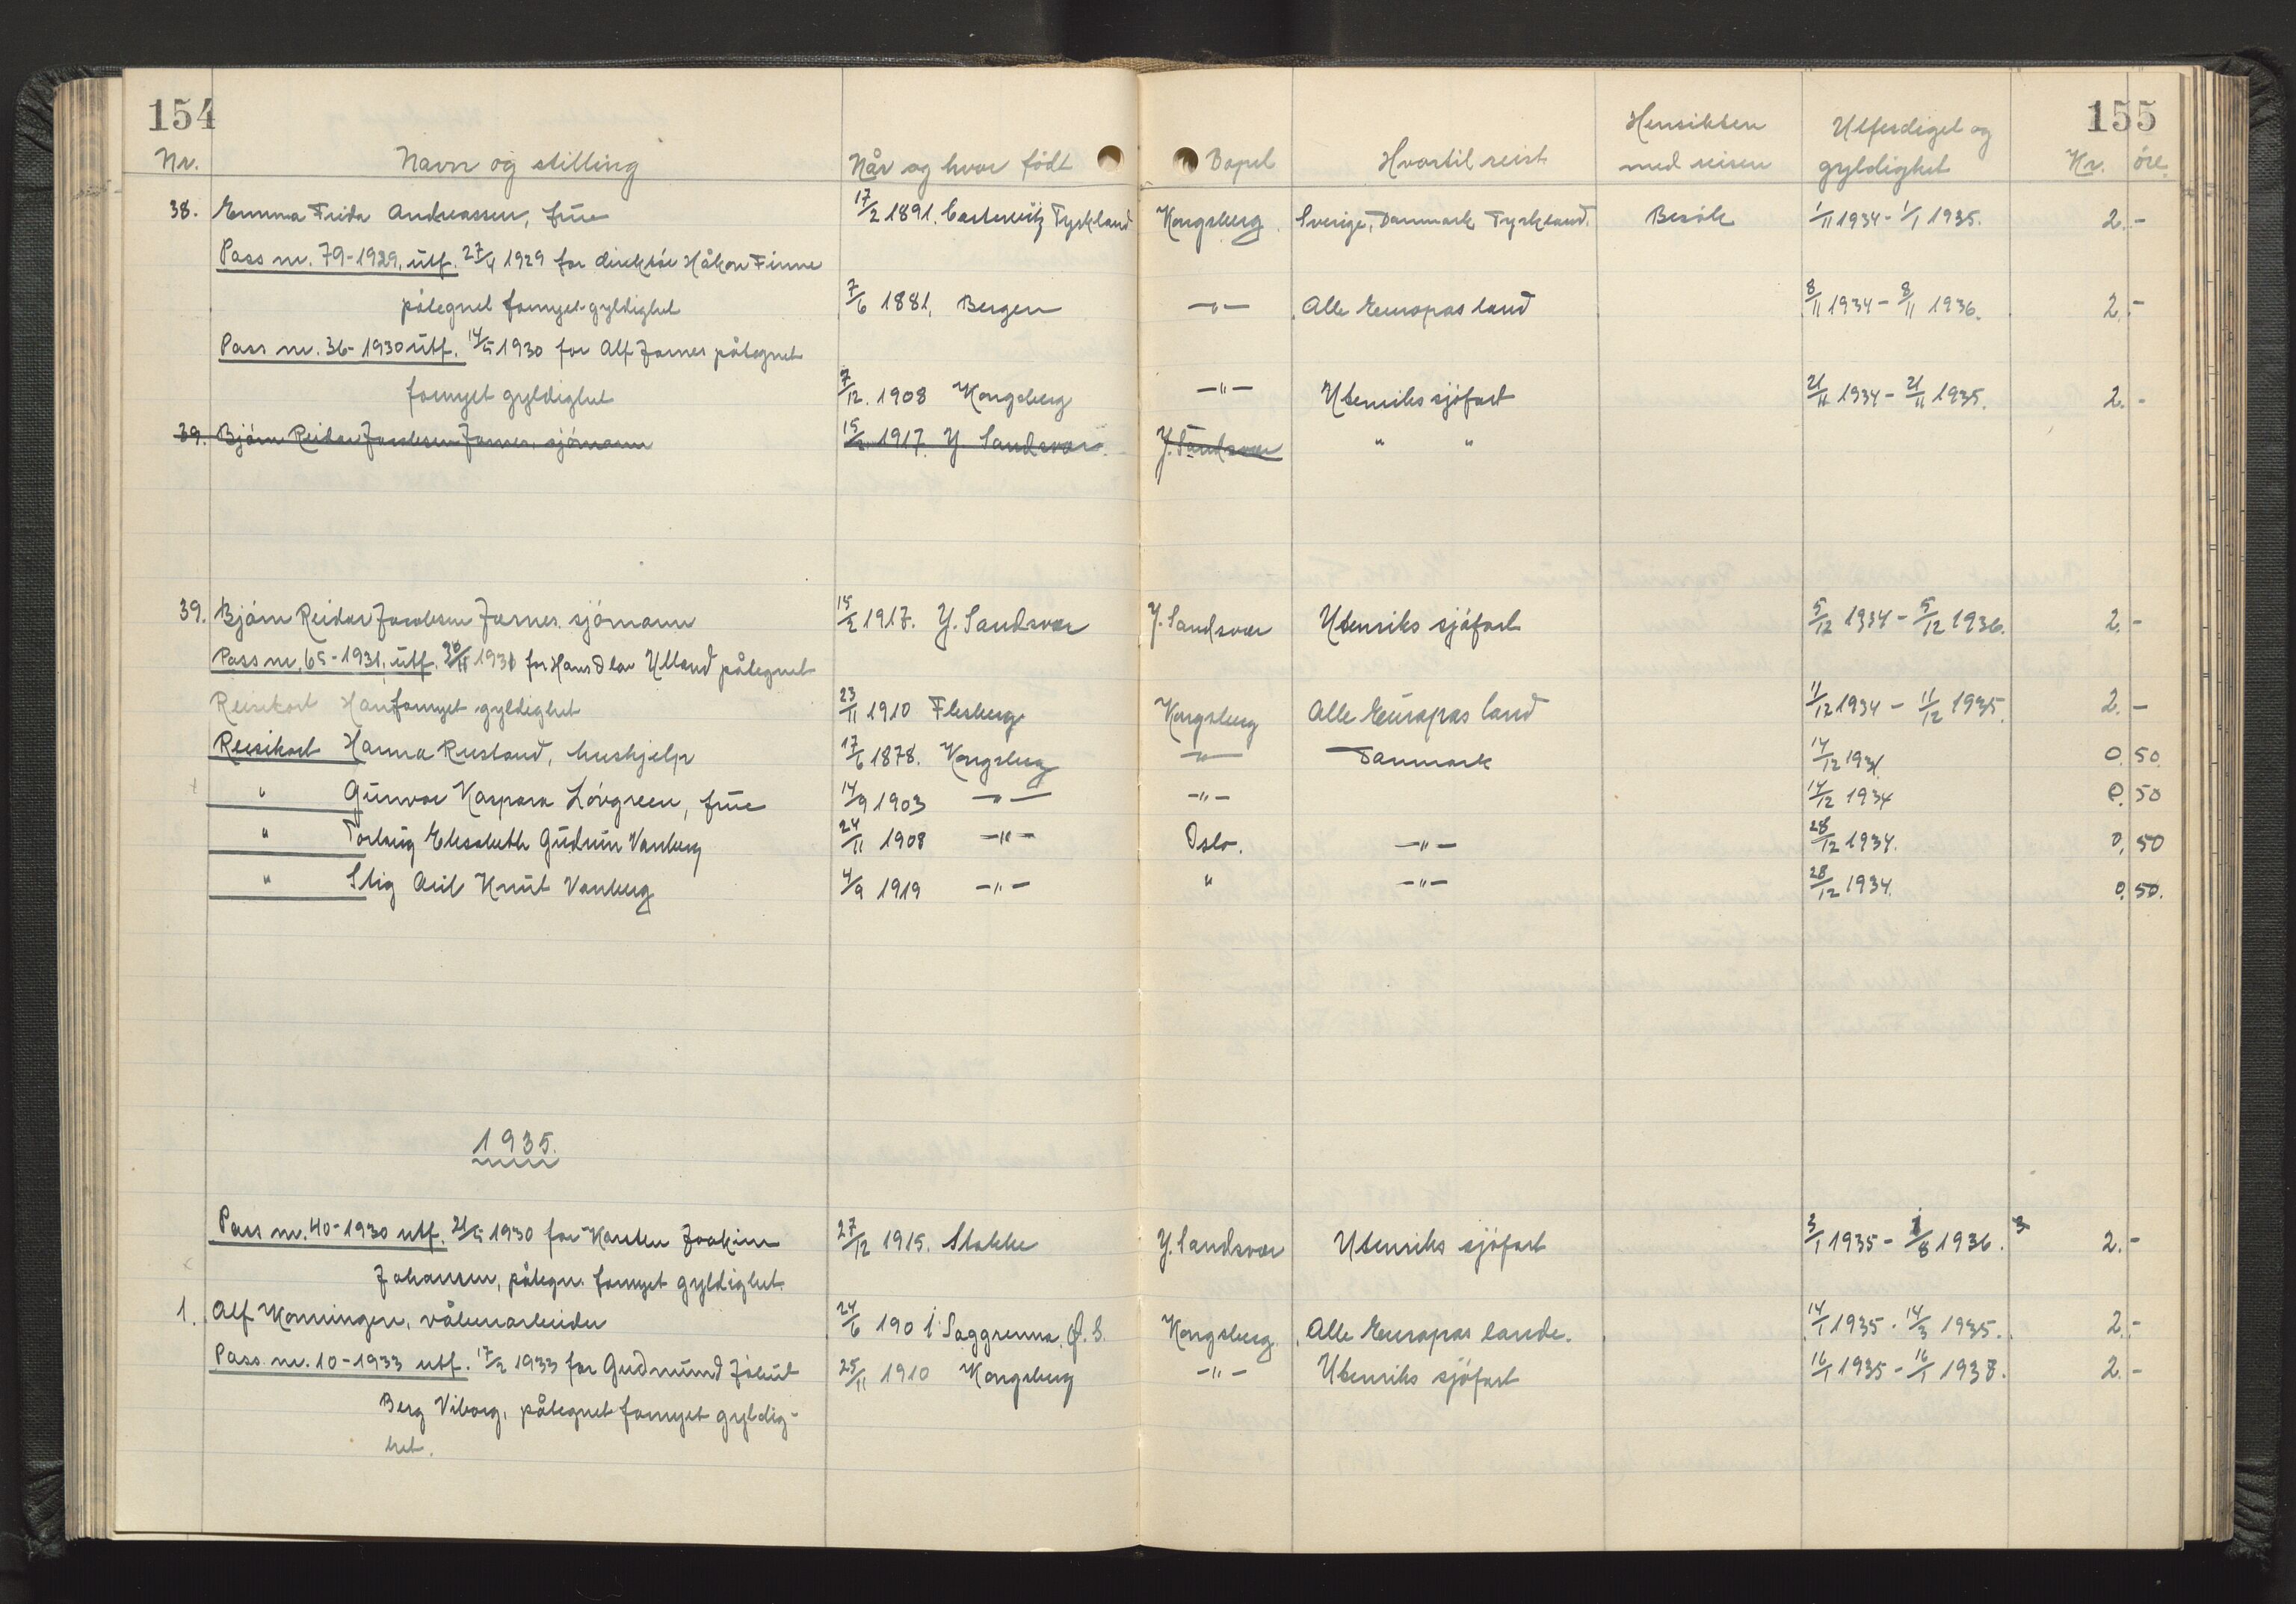 154
155
Nr. Navn og stilling Når og hvor född Bopel Hvortil reist Hensikten med reisen Utferdiget og gyldighet Kr. öre.
38. Emma Frida Andreassen, frue 17/2 1891. Tyskland Kongsberg. Sverige, Danmark Tyskland. Besök 1/11 1934 - 1/1 1935. 2. -
Pass nr. 79-1929, utf. 27/4 1929 for direktör Håkon Finne
påtegnet fornyet gyldighet 7/6 1881, Bergen -"- Alle Europas land 8/11 1934 - 8/11 1936. 2. -
Pass nr. 36-1930 utf. 14/5 1930 for Alf Jarnes påtegnet
fornyet gyldighet 7/12. 1908 Kongsberg -"- Utenriks sjöfart 21/11 1934 - 21/11 1935. 2. -
39. Björn Reidar Jacobsen Jarnes, sjömann 15/2 1917. Y. Sandsvær. Y. Sandsvær " "
39. Björn Reidar Jacobsen Jarnes. sjömann 15/2 1917. Y. Sandsvær Y. Sandsvær Utenriks sjöfart 5/12 1934 - 5/12 1936. 2. -
Pass nr. 65-1931, utf. 1931 for Hans Olav Ulland påtegnet
Reisekort Han fornyet gyldighet 23/11 1910 Flesberg Kongsberg Alle Europas land 11/12 1934 - 11/12 1935. 2. -
Reisekort Hanna Rustand, hushjelp 17/6 1878. Kongsberg -"- Danmark 14/12 1934. 0. 50.
" Gunvor Kaspara Lövgreen, frue 14/9 1903 -"- -"- 14/12 1934 0. 50
" Torbjug Elisabeth Gudrun Vanberg 24/11 1908 -"- Oslo. -"- 28/12 1934. 0, 50
" Stig Aril Knut Vanberg 4/9 1919 -"- " -"- 28/12 1934. 0. 50.
1935.
Pass nr. 40-1930 utf. 21/5 1930 for Karsten Joakim 27/12 1915. Stokke Y. Sandsvær Utenriks sjöfart 3/1 1935 - 1/8 1936. 3 2. -
Johansen, påtegn. fornyet gyldighet.
1. Alf Korningen, våbenarbeider 24/6 1901 Saggrenna, Ø. S. Kongsberg. Alle Europas lande. 14/1 1935 - 14/3 1935. 2. -
Pass nr. 10-1933 utf. 17/2 1933 for Gudmund 25/11 1910 Kongsberg -"- Utenriks sjöfart 16/1 1935 - 16/1 1938. 2. -
Berg Viborg, påtegnet fornyet gyldig-
het.